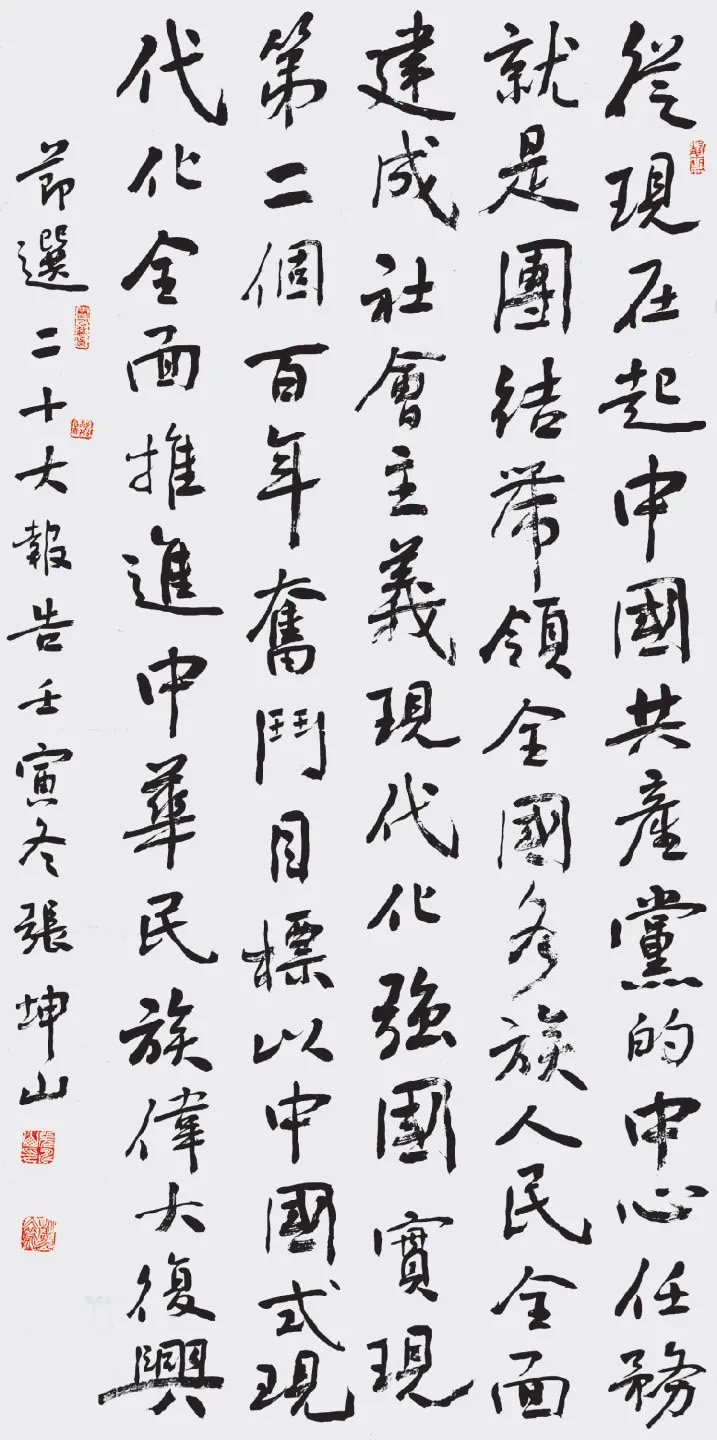 從現在起中國共產黨的中心任務
就是團結帶領全國各族人民全面
建成社會主義現代化強國實現
第二個百年奮鬥目標以中國式現
代化全面推進中華民族偉大復興
節選二十大報告壬寅冬張坤山